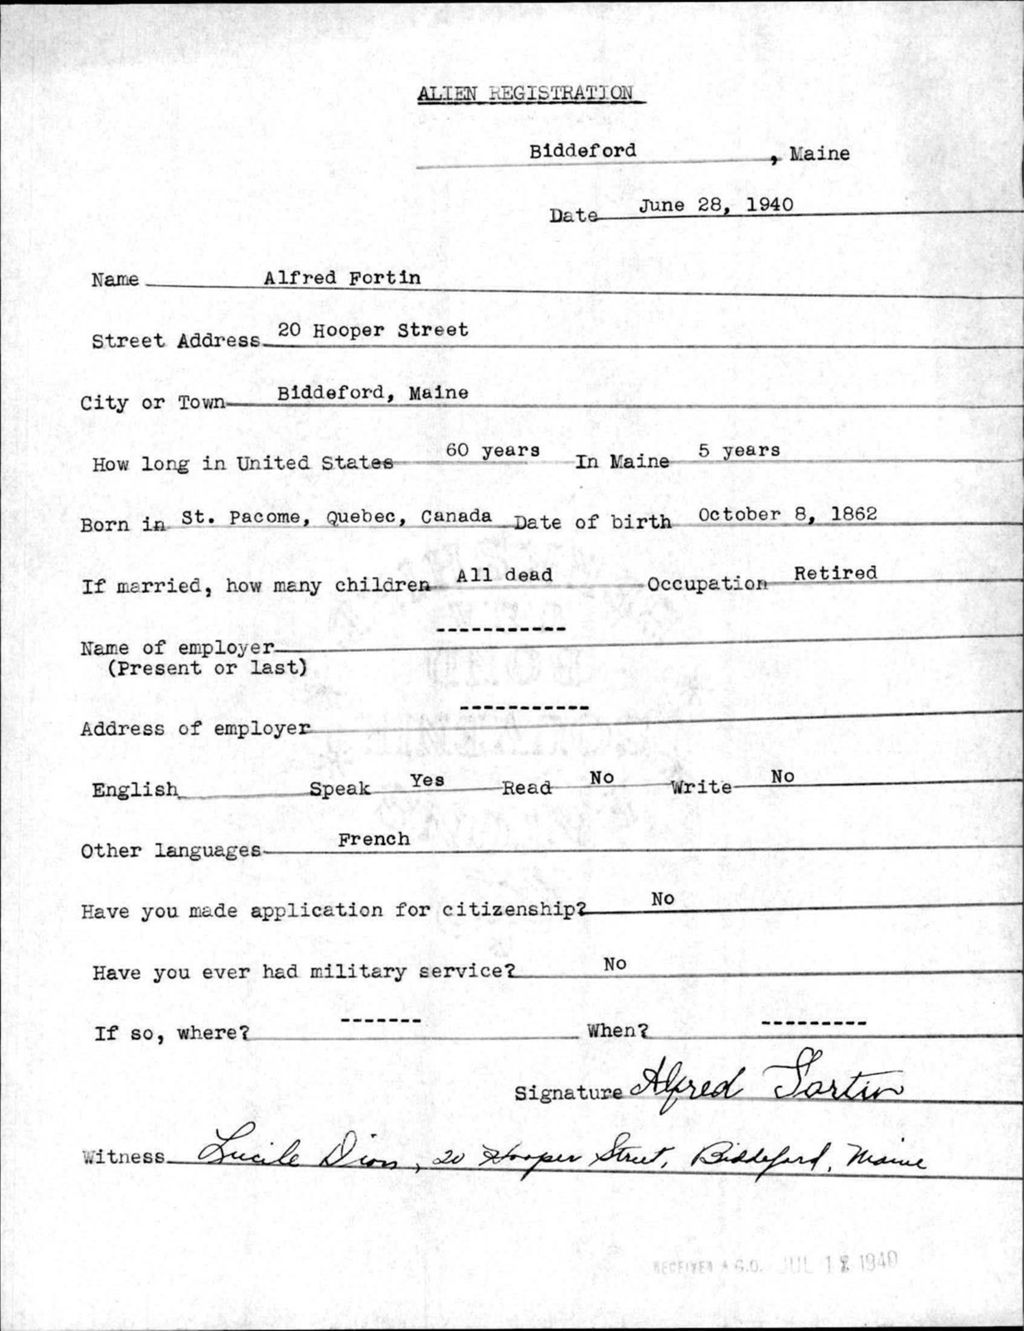 ALIEN REGISTRATION
Biddeford, Maine
Date June 28, 1940
Name Alfred Fortin
Street Address 20 Hooper Street
City or Town Biddeford, Maine
How long in United States 60 years In Maine 5 years
Born in St. Pacome, Quebec, Canada Date of birth October 8, 1862
If married, how many children All dead Occupation Retired
Name of employer -----------
(Present or last)
Address of employer -----------
English Speak Yes Read No Write No
Other languages French
Have you made application for citizenship? No
Have you ever had military service? No
If so, where? ------- When? ---------
Signature Alfred Fortin
Witness Lucile Dion, 20 Hooper Street, Biddeford, Maine
RECEIVED A.G.O. JUL 12 1940